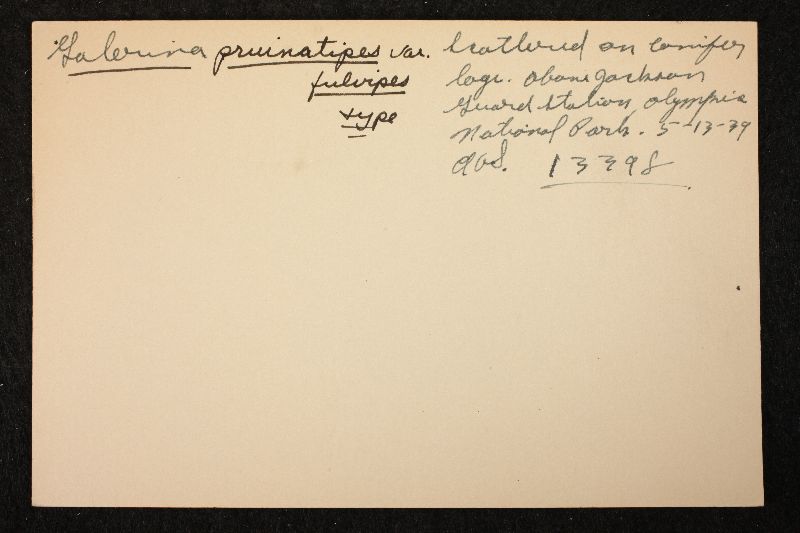 Galerina pruinatipes var.
fulvipes
type
Scattered on conifer
logs. above Jackson
Guard Station, Olympic
National Park. 5-13-39
AHS. 13398